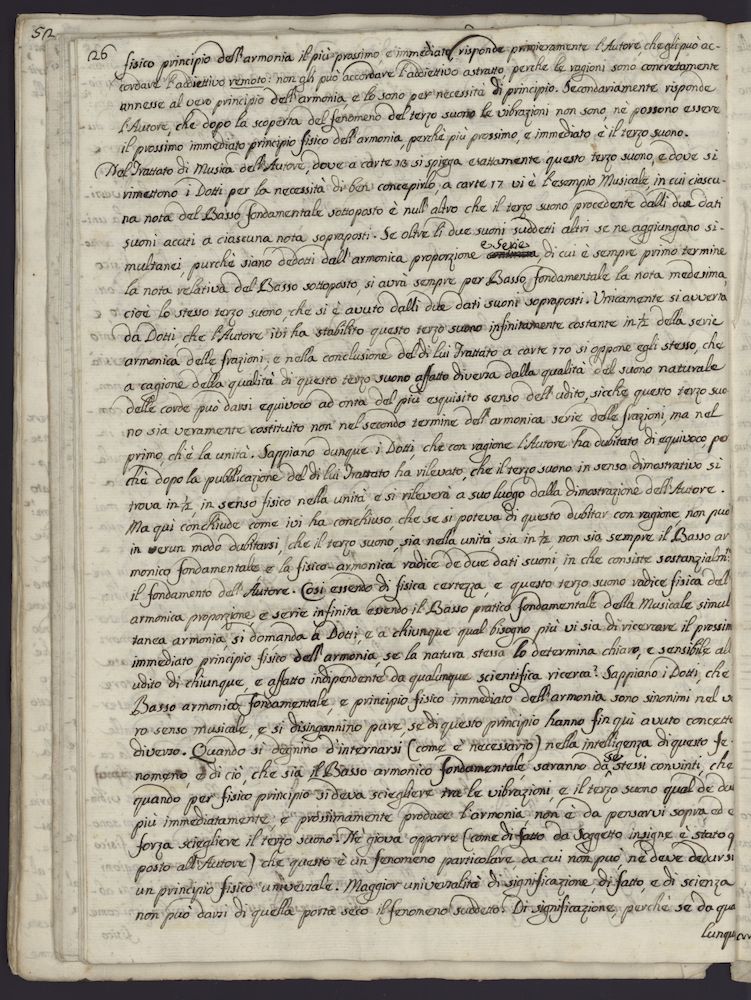 52
26
fisico principio dell'armonia il più prossimo e immediato, risponde primieramente l'Autore che gli può ac-
cordare l'addiettivo remoto: non gli può accordare l'addiettivo astratto, perchè le ragioni sono concretamente
annesse al vero principio dell'armonia, e lo sono per necessità di principio. Secondariamente risponde
l'Autore, che dopo la scoperta del fenomeno del terzo suono le vibrazioni non sono, nè possono essere
il prossimo immediato principio fisico dell'armonia, perchè più prossimo, e immediato è il terzo suono.
Nel Trattato di Musica dell'Autore, dove a carte 13 si spiega esattamente questo terzo suono, e dove si
rimettono i Dotti per la necessità di ben concepirlo, a carte 17 vi è l'esempio Musicale, in cui ciascu-
na nota del Basso fondamentale sottoposto è null'altro che il terzo suono procedente dalli due dati
suoni acuti a ciascuna nota sopraposti. Se oltre li due suoni suddetti altri se ne aggiungano si-
multanei, purchè siano dedotti dall'armonica proporzione e serie, di cui è sempre primo termine
la nota relativa del Basso sottoposto, si avrà sempre per Basso fondamentale la nota medesima,
cioè lo stesso terzo suono, che si è avuto dalli due dati suoni sopraposti. Unicamente si averta
da Dotti, che l'Autore ivi ha stabilito questo terzo suono infinitamente costante in ½ della serie
armonica delle frazioni, e nella conclusione del di lui Trattato a carte 170 si oppone egli stesso, che
a cagione della qualità di questo terzo suono affatto diversa dalla qualità del suono naturale
delle corde può darsi equivoco ad onta del più esquisito senso dell'udito, sicchè questo terzo suo
no sia veramente costituito non nel secondo termine dell'armonica serie delle frazioni, ma nel
primo, ch'è la unità. Sappiano dunque i Dotti, che con ragione l'Autore ha dubitato di equivoco per
chè dopo la pubblicazione del di lui Trattato ha rilevato, che il terzo suono in senso dimostrativo si
trova in ½, in senso fisico nella unità e si rileverà a suo luogo dalla dimostrazione dell'Autore.
Ma quì conchiude come ivi ha conchiuso, che se si poteva di questo dubitar con ragione non può
in verun modo dubitarsi, che il terzo suono, sia nella unità, sia in ½ non sia sempre il Basso ar
monico fondamentale e la fisico-armonica radice de due dati suoni, in che consiste sostanzialm:
il fondamento dell'Autore. Così essendo di fisica certezza, e questo terzo suono radice fisica dell'
armonica proporzione e serie infinita essendo il Basso pratico fondamentale della Musicale simul
tanea armonia, si domanda a Dotti, e a chiunque qual bisogno più vi sia di ricercare il prossim
immediato principio fisico dell'armonia, se la natura stessa lo determina chiaro, e sensibile all
udito di chiunque e affatto indipendente da qualunque scientifica ricerca? Sappiano i Dotti, che
Basso armonico fondamentale, e principio fisico immediato dell'armonia sono sinonimi nel v
ro senso musicale, e si disingannino pure, se di questo principio hanno fin quì avuto concetto
diverso. Quando si degnino d'internarsi (come è necessario) nella intelligenza di questo fe-
nomeno, e di ciò, che sia il Basso armonico fondamentale saranno da se stessi convinti, che
quando per fisico principio si deva sciegliere tra le vibrazioni, e il terzo suono qual de due
più immediatamente, e prossimamente produce l'armonia, non è da pensarvi sopra ed è
forza sciegliere il terzo suono. Nè giova opporre (come di fatto da Soggetto insigne è stato o
posto all'Autore) che questo è un fenomeno particolare da cui non può nè deve dedursi
un principio fisico universale. Maggior universalità di significazione, di fatto, e di scienza
non può darsi di quella porta seco il fenomeno suddetto. Di significazione, perchè se da qua
lunque